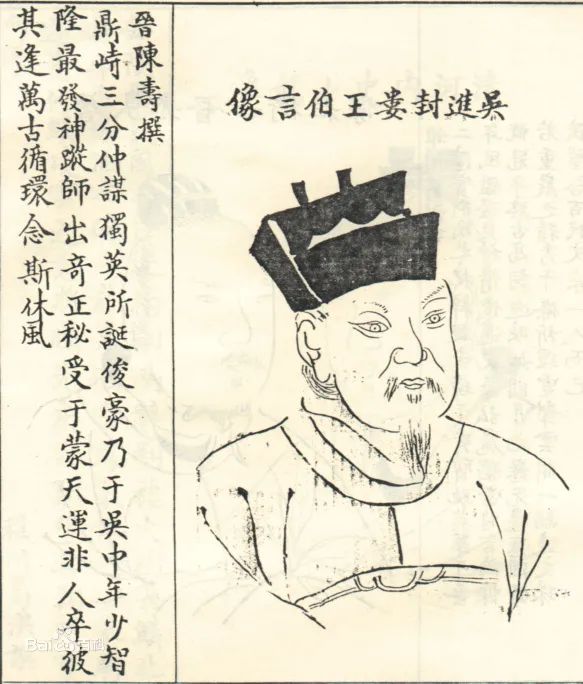 吳進封婁王伯言像
晉陳壽撰
鼎峙三分仲謀獨英所誕俊豪乃于吳中年少智
隆最發神蹤師出奇正秘受于蒙天運非人卒彼
其逢萬古循環念斯休風
Bai百科